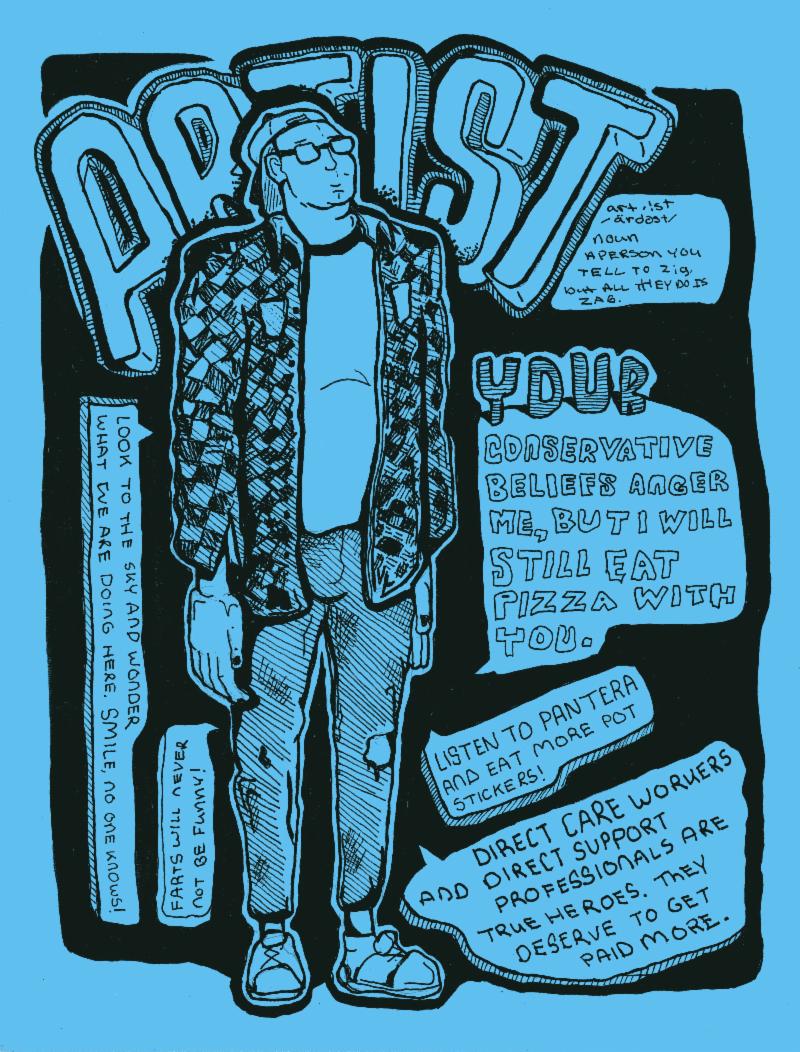 ARTIST
art.ist
/ärdəst/
noun
A PERSON YOU
TELL TO zig,
but ALL tHEY DO IS
ZAG.
YOUR
CONSERVATIVE
BELIEFS ANGER
ME, BUT I WILL
STILL EAT
PIZZA WITH
YOU.
LOOK TO THE SKY AND WONDER
WHAT WE ARE DOING HERE. SMILE, NO ONE KNOWS!
FARTS WILL NEVER
NOT BE FUNNY!
LISTEN TO PANTERA
AND EAT MORE POT
STICKERS!
DIRECT CARE WORKERS
AND DIRECT SUPPORT
PROFESSIONALS ARE
TRUE HEROES. THEY
DESERVE TO GET
PAID MORE.